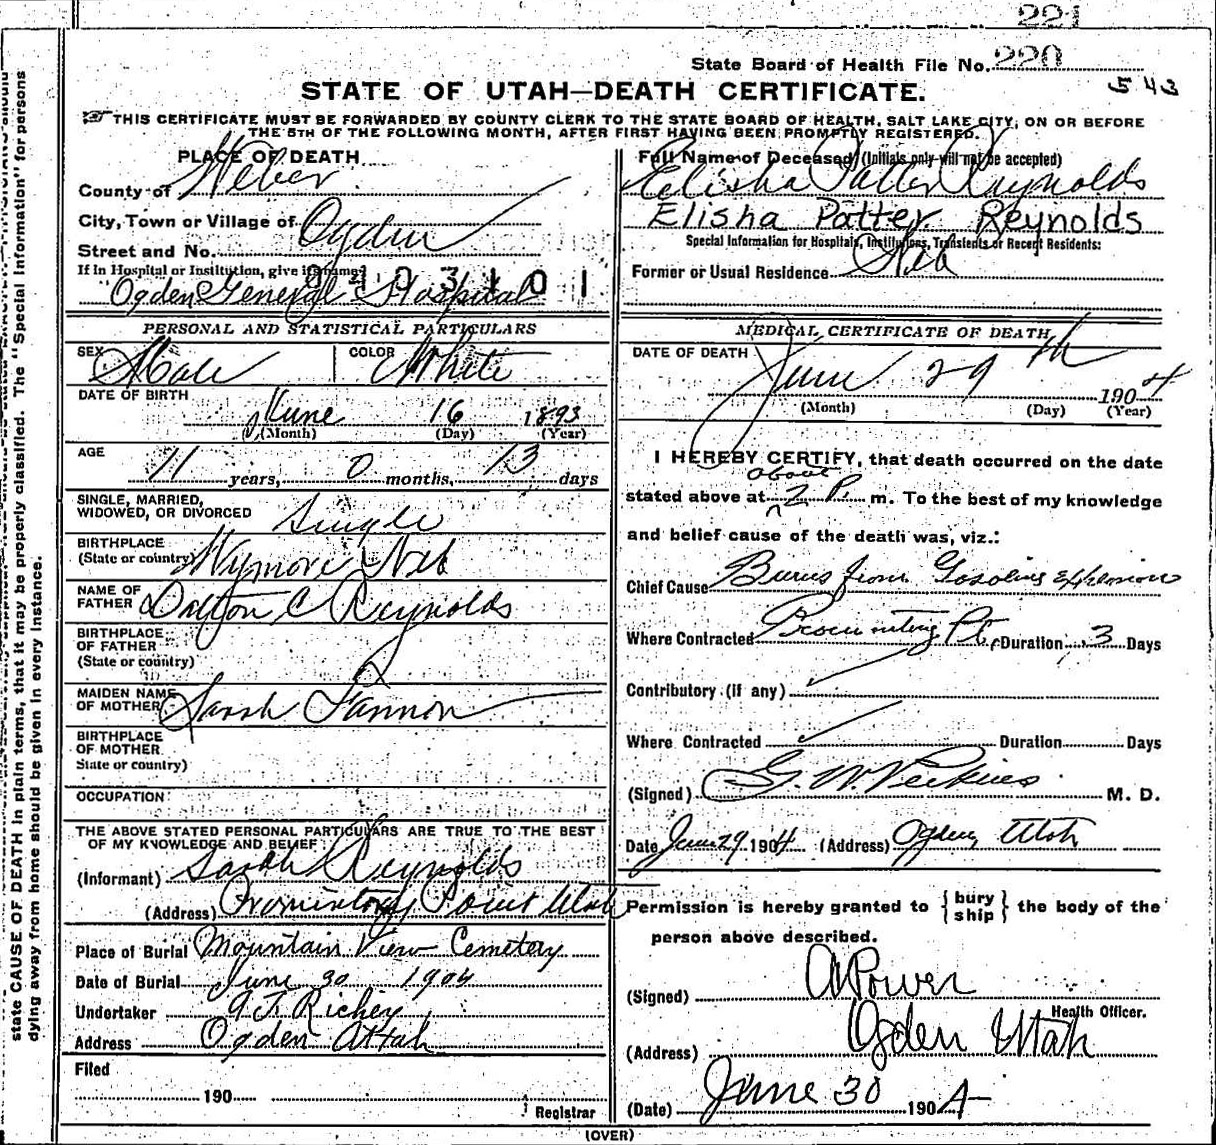 221
State Board of Health File No. 220
543
STATE OF UTAH—DEATH CERTIFICATE.
THIS CERTIFICATE MUST BE FORWARDED BY COUNTY CLERK TO THE STATE BOARD OF HEALTH, SALT LAKE CITY, ON OR BEFORE
THE 5TH OF THE FOLLOWING MONTH, AFTER FIRST HAVING BEEN PROMPTLY REGISTERED.
state CAUSE OF DEATH in plain terms, that it may be properly classified. The "Special Information" for persons
dying away from home should be given in every instance.
PLACE OF DEATH
County of Weber
City, Town or Village of Ogden
Street and No.
If in Hospital or Institution, give its name
Ogden General Hospital
0403101
PERSONAL AND STATISTICAL PARTICULARS
SEX Male COLOR White
DATE OF BIRTH
June 16 1893
(Month) (Day) (Year)
AGE
11 years, 0 months, 13 days
SINGLE, MARRIED,
WIDOWED, OR DIVORCED Single
BIRTHPLACE
(State or country) Wymore Neb
NAME OF
FATHER Dalton C Reynolds
BIRTHPLACE
OF FATHER
(State or country)
MAIDEN NAME
OF MOTHER Sarah Fannon
BIRTHPLACE
OF MOTHER
State or country)
OCCUPATION
THE ABOVE STATED PERSONAL PARTICULARS ARE TRUE TO THE BEST
OF MY KNOWLEDGE AND BELIEF
(Informant) Sarah Reynolds
(Address) Promintory Point Utah
Place of Burial Mountain View Cemetery
Date of Burial June 30 1904
Undertaker Richey
Address Ogden Uttah
Filed
190
Registrar
Full Name of Deceased (Initials only will not be accepted)
Elisha Patter Reynolds
Elisha Patter Reynolds
Special Information for Hospitals, Institutions, Transients or Recent Residents:
Former or Usual Residence Neb
MEDICAL CERTIFICATE OF DEATH
DATE OF DEATH
June 29th 1904
(Month) (Day) (Year)
I HEREBY CERTIFY, that death occurred on the date
about
stated above at 2 P. m. To the best of my knowledge
and belief cause of the death was, viz.:
Chief Cause Burns from Gasoline explosion
Where Contracted Promintory Pt. Duration 3 Days
Contributory (if any)
Where Contracted Duration Days
(Signed) G. W. Perkins M. D.
Date June 29 1904 (Address) Ogden Utah
Permission is hereby granted to {bury ship} the body of the
person above described.
(Signed) A Power
Health Officer.
(Address) Ogden Utah
(Date) June 30 1904
(OVER)